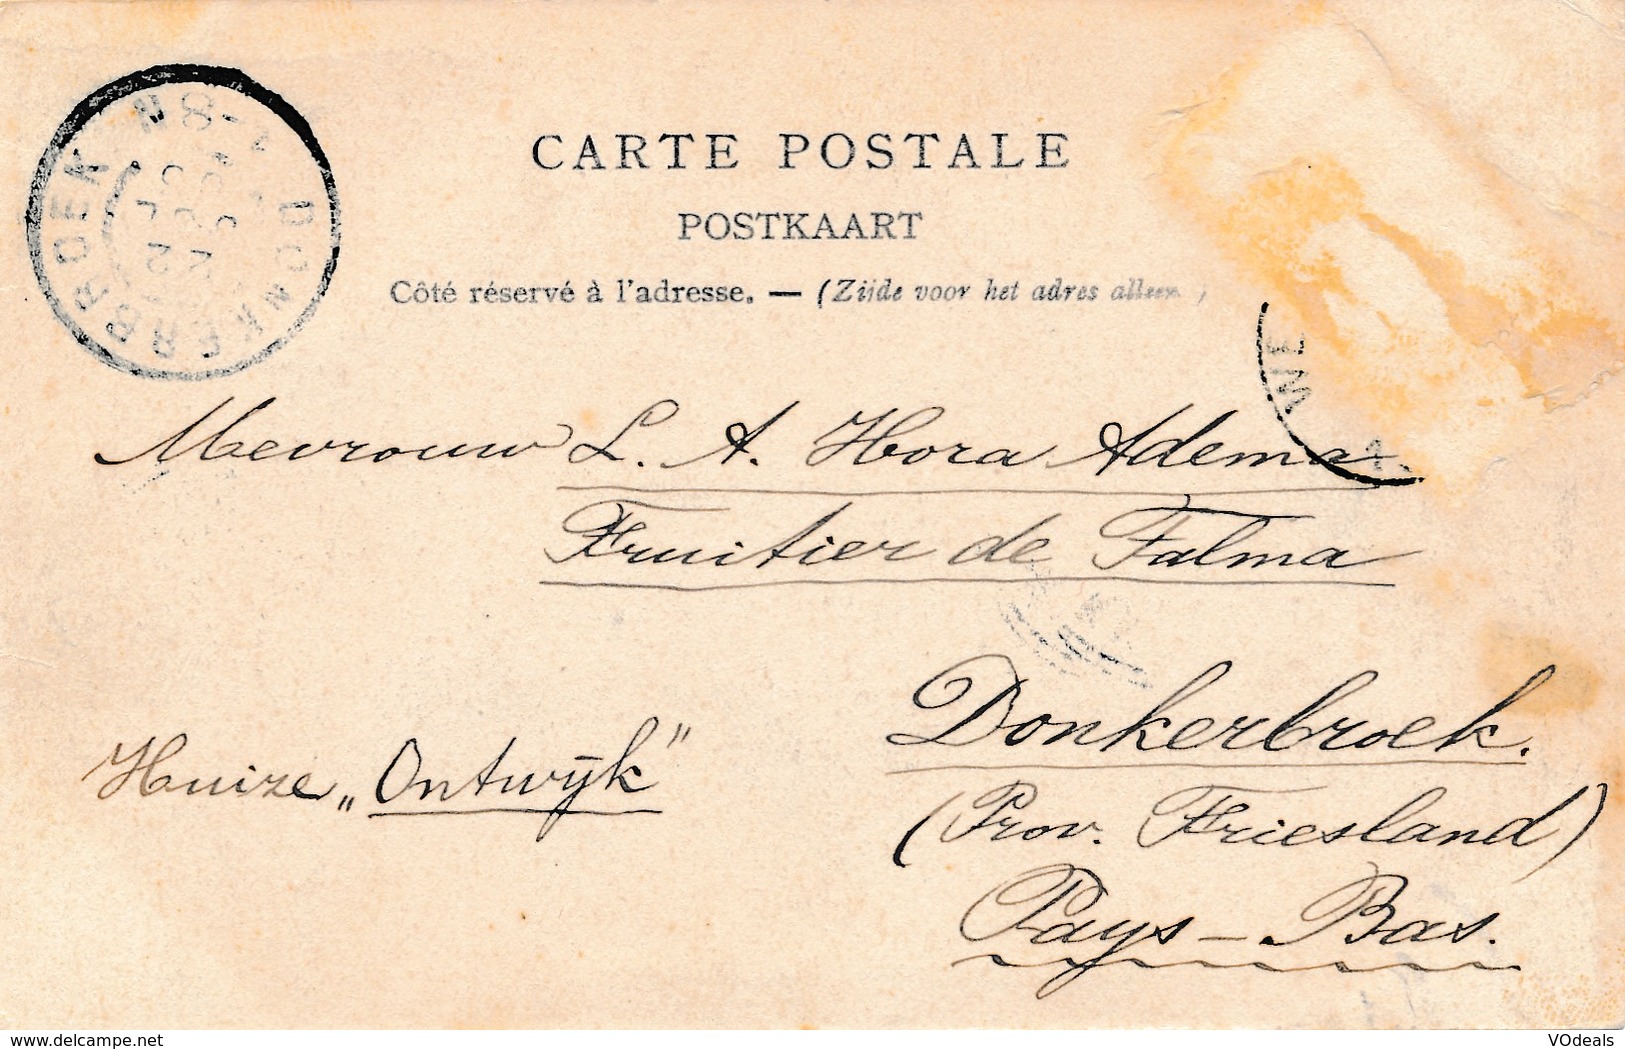 CARTE POSTALE
POSTKAART
Côté réservé à l'adresse. — (Zijde voor het adres alleen)
DONKERBROEK
Mevrouw L. A. Hora Adema
Fruitier de Talma
Donkerbroek.
Huize „Ontwijk"
(Prov. Friesland)
Pays-Bas.
www.delcampe.net
VOdeals